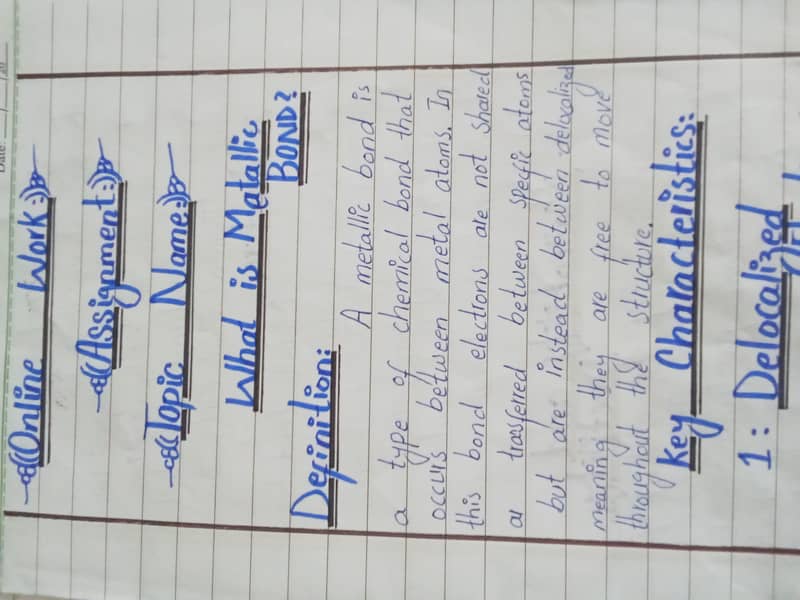 Date:
Online Work:
Assignment:
Topic Name:
What is Metallic
BOND?
Definition:
A metallic bond is
a type of chemical bond that
occurs between metal atoms. In
this bond electrons are not shared
or trasferred between specific atoms
but are instead between delocalized
meaning they are free to move
throughout the structure.
Key Characteristics:
1: Delocalized